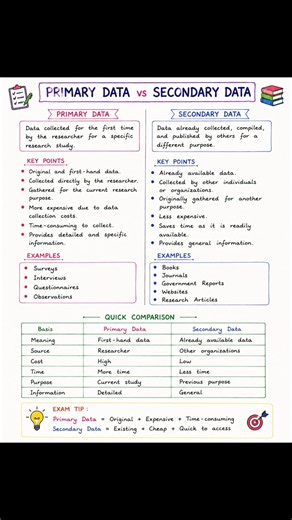 PRIMARY DATA vs SECONDARY DATA
PRIMARY DATA
Data collected for the first time
by the researcher for a specific
research study.
KEY POINTS
• Original and first-hand data.
• Collected directly by the researcher.
• Gathered for the current research
purpose.
• More expensive due to data
collection costs.
• Time-consuming to collect.
• Provides detailed and specific
information.
EXAMPLES
• Surveys
• Interviews
• Questionnaires
• Observations
SECONDARY DATA
Data already collected, compiled,
and published by others for a
different purpose.
KEY POINTS
• Already available data.
• Collected by other individuals
or organizations.
• Originally gathered for another
purpose.
• Less expensive.
• Saves time as it is readily
available.
• Provides general information.
EXAMPLES
• Books
• Journals
• Government Reports
• Websites
• Research Articles
QUICK COMPARISON
Basis Primary Data Secondary Data
Meaning First-hand data Already available data
Source Researcher Other organizations
Cost High Low
Time More time Less time
Purpose Current study Previous purpose
Information Detailed General
EXAM TIP :
Primary Data = Original + Expensive + Time-consuming
Secondary Data = Existing + Cheap + Quick to access